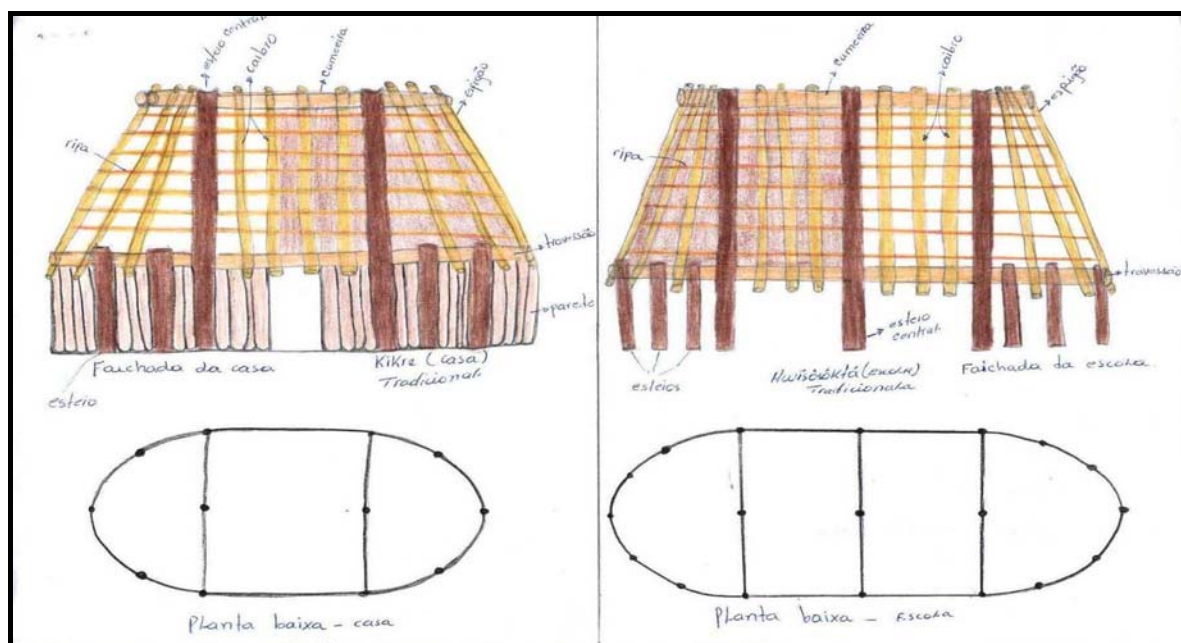 esteio central
caibro
cumeeira
espigão
ripa
travessão
parede
Faichada da casa
Kikre (casa)
Tradicional.
esteio
Planta baixa - casa
cumeeira
caibro
espigão
ripa
travessão
esteio
central.
esteios
Tradicional
Faichada da escola.
Planta baixa - Escola